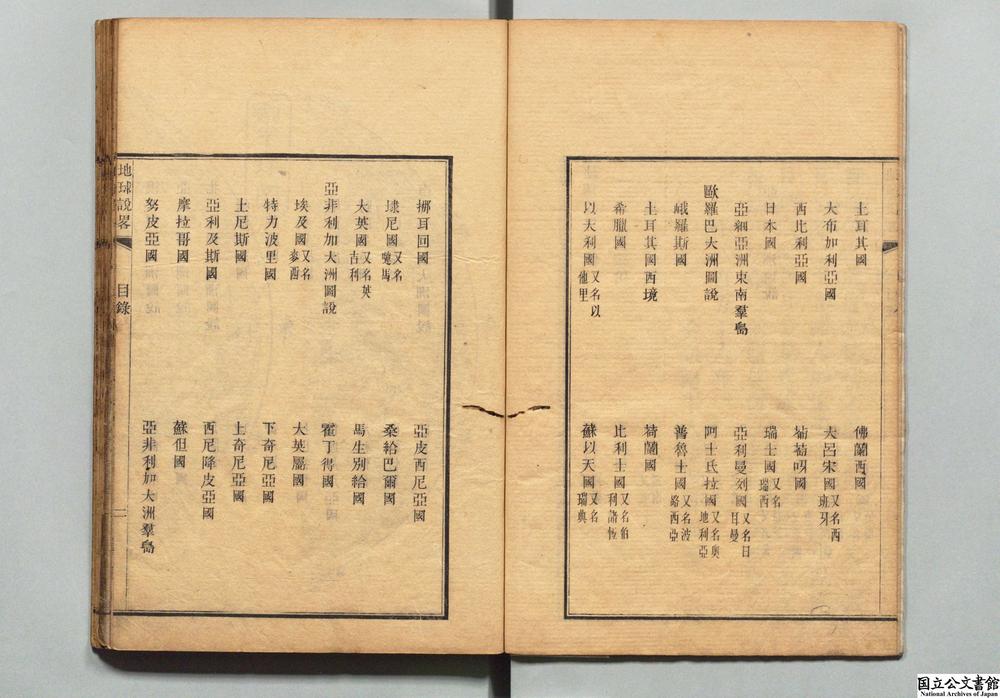 土耳其國
大布加利亞國
西比利亞國
日本國
亞細亞洲東南羣島
歐羅巴大洲圖說
峨羅斯國
土耳其國西境
希臘國
以大利國 又名以他里
佛蘭西國
大呂宋國 又名西班牙
葡萄呀國
瑞士國 又名瑞西
亞利曼列國 又名日耳曼
阿士氐拉國 又名奧地利亞
普魯士國 又名波路西亞
荷蘭國
比利士國 又名伯利諸恆
蘇以天國 又名瑞典
挪耳回國
埭尼國 又名嗹馬
大英國 又名英吉利
亞非利加大洲圖說
埃及國 又名麥西
特力波里國
土尼斯國
亞利及斯國
摩拉哥國
努皮亞國
亞皮西尼亞國
桑給巴爾國
馬生別給國
霍丁得國
大英屬國
下奇尼亞國
上奇尼亞國
西尼降皮亞國
蘇但國
亞非利加大洲羣島
地球說畧 目錄 二
国立公文書館
National Archives of Japan